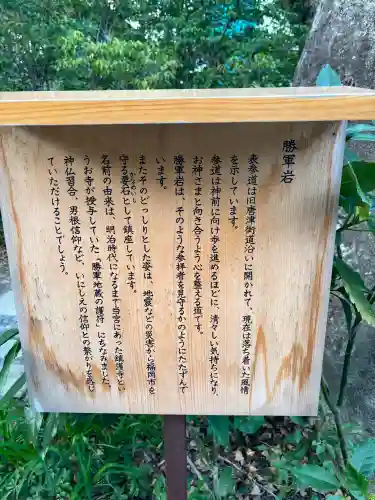 勝軍岩
表参道は旧唐津街道沿いに開かれて、現在は落ち着いた風情
を示しています。
参道は神前に向け歩を進めるほどに、清々しい気持ちになり、
お神さまと向き合うよう心を整える道です。
勝軍岩は、そのような参拝者を見守るかのようにたたずんで
います。
またそのどっしりとした姿は、地震などの災害から福岡市を
守る要石（かなめいし）として鎮座しています。
名前の由来は、明治時代になるまで当宮にあった鎮護寺とい
うお寺が授与していた「勝軍地蔵の護符」にちなみました。
神仏習合、男根信仰など、いにしえの信仰との繋がりを感じ
ていただけることでしょう。